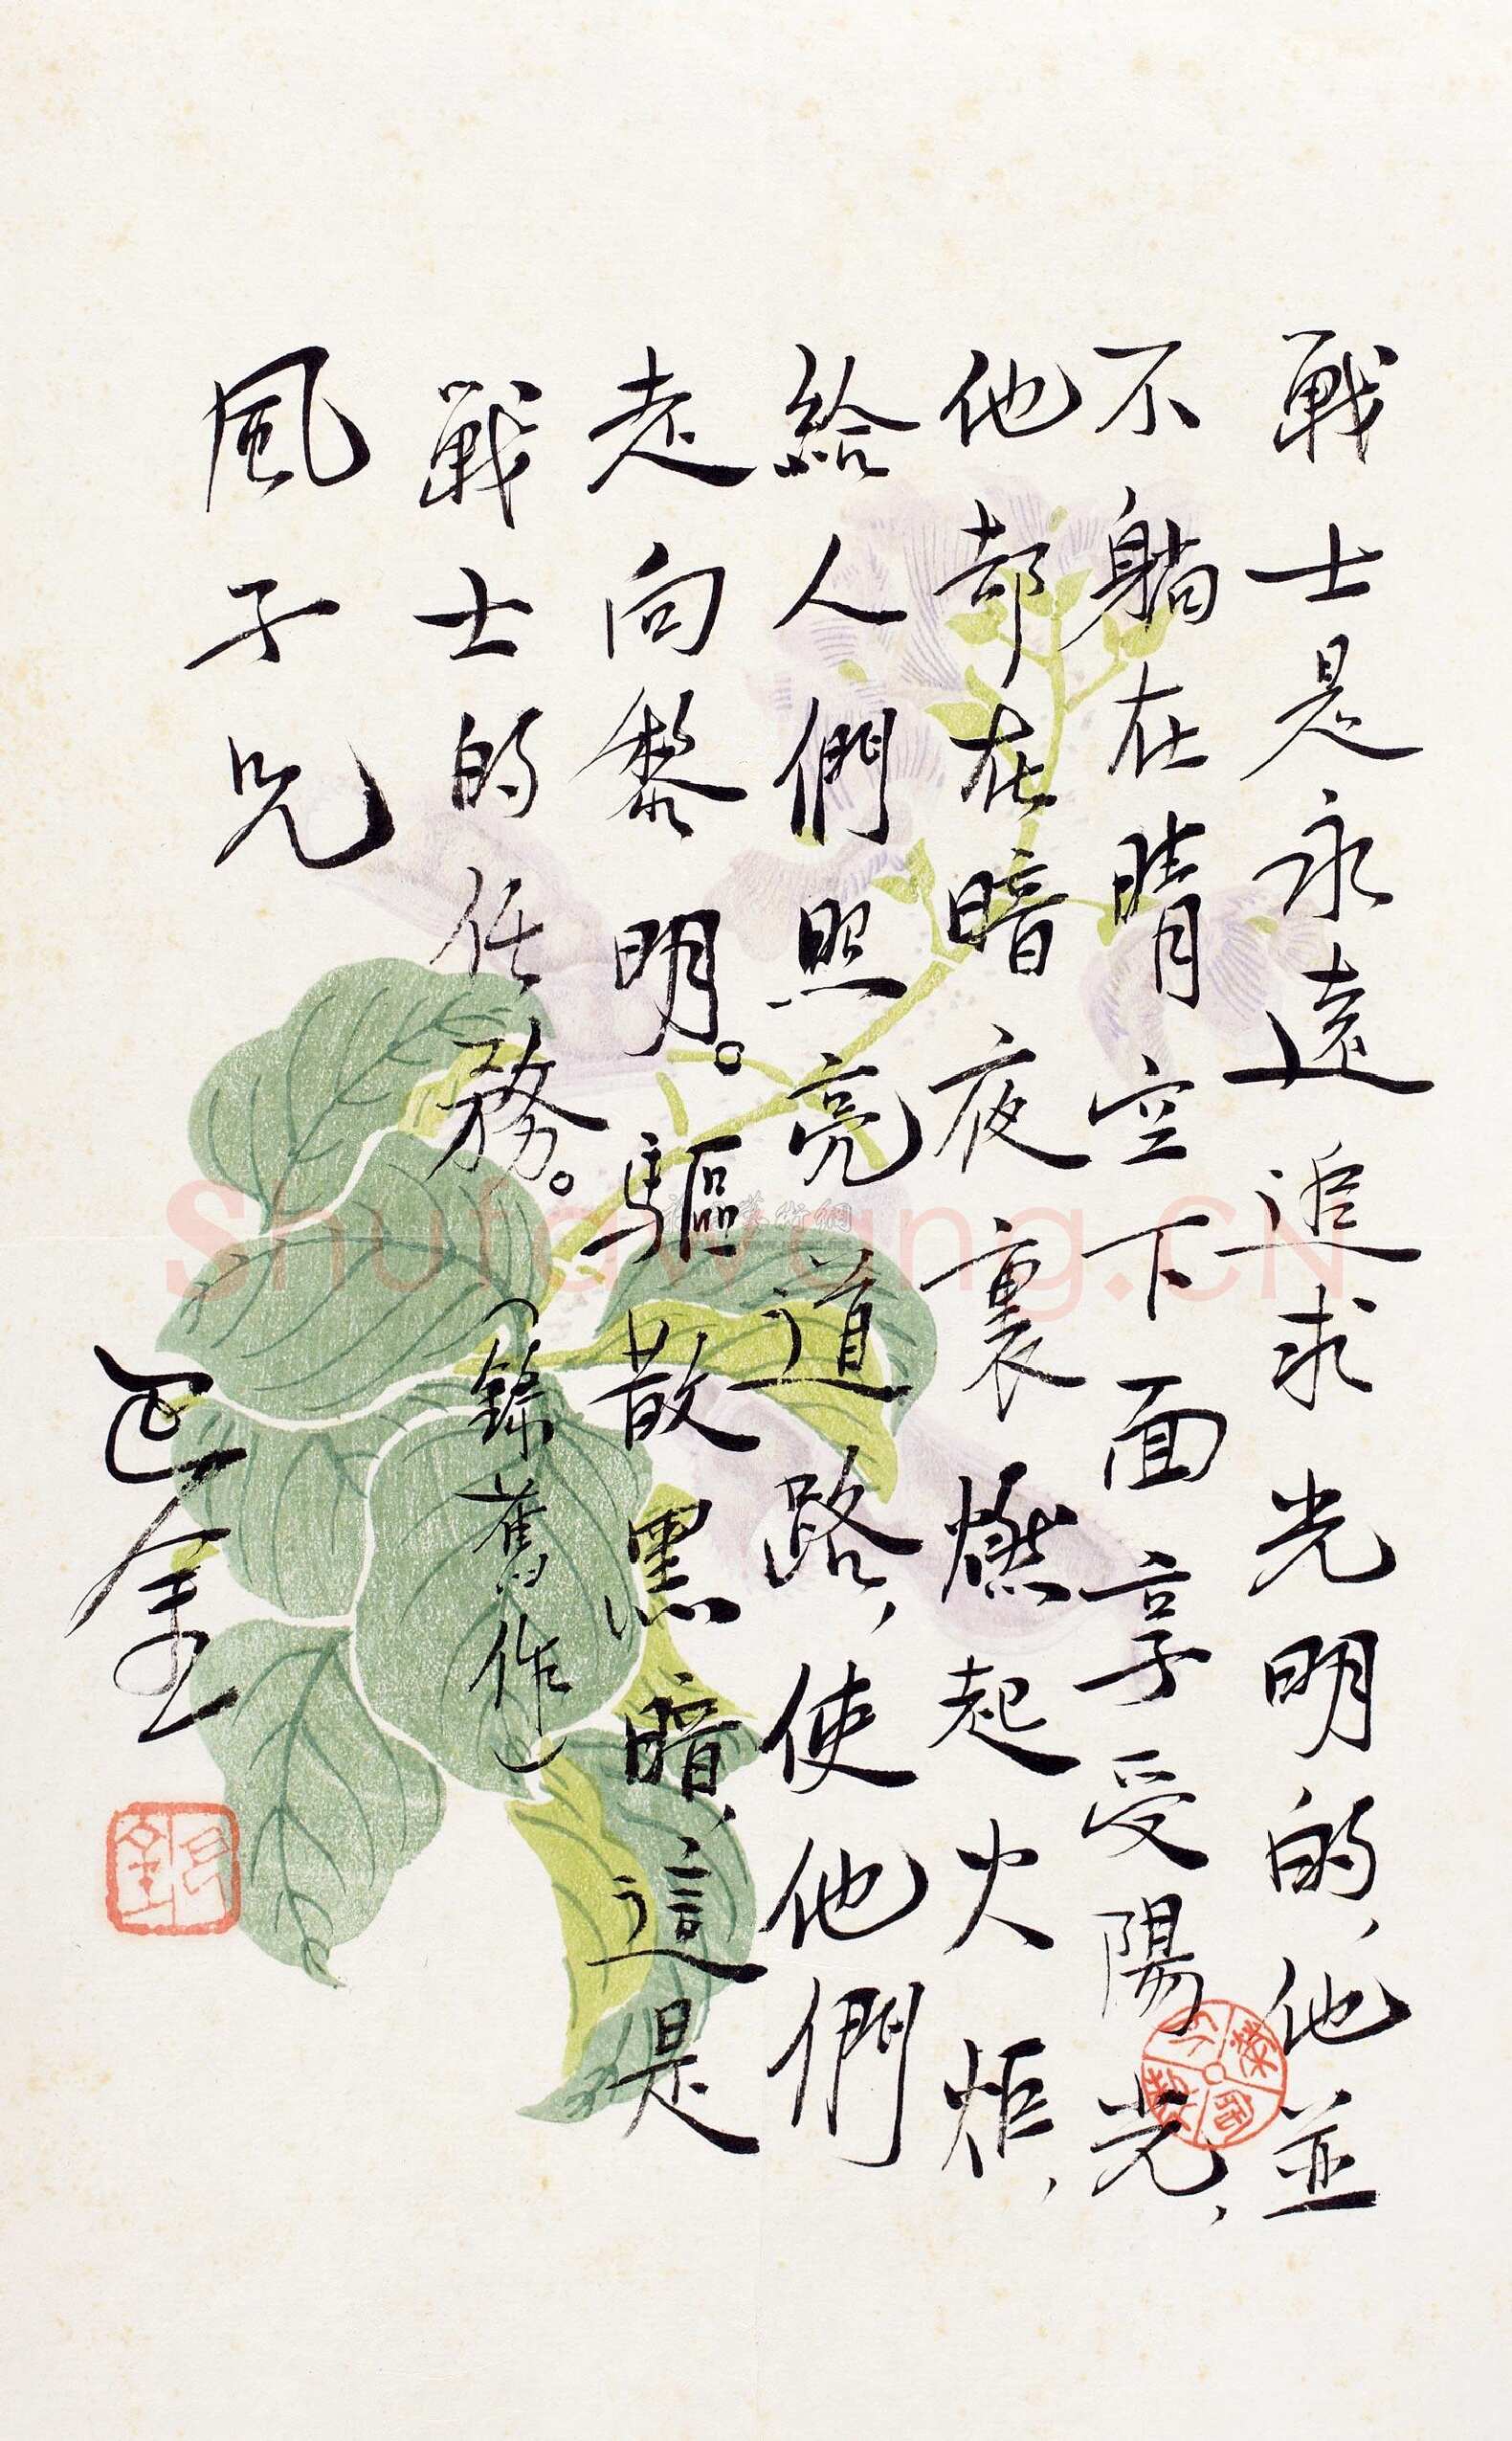 戰士是永遠追求光明的，他並
不躺在晴空下面享受陽光，
他都在暗夜裏燃起火炬，
給人們照亮道路，使他們
走向黎明。驅散黑暗，這是
戰士的任務。（錄舊作）
風子兄
巴金
Shufawang.CN